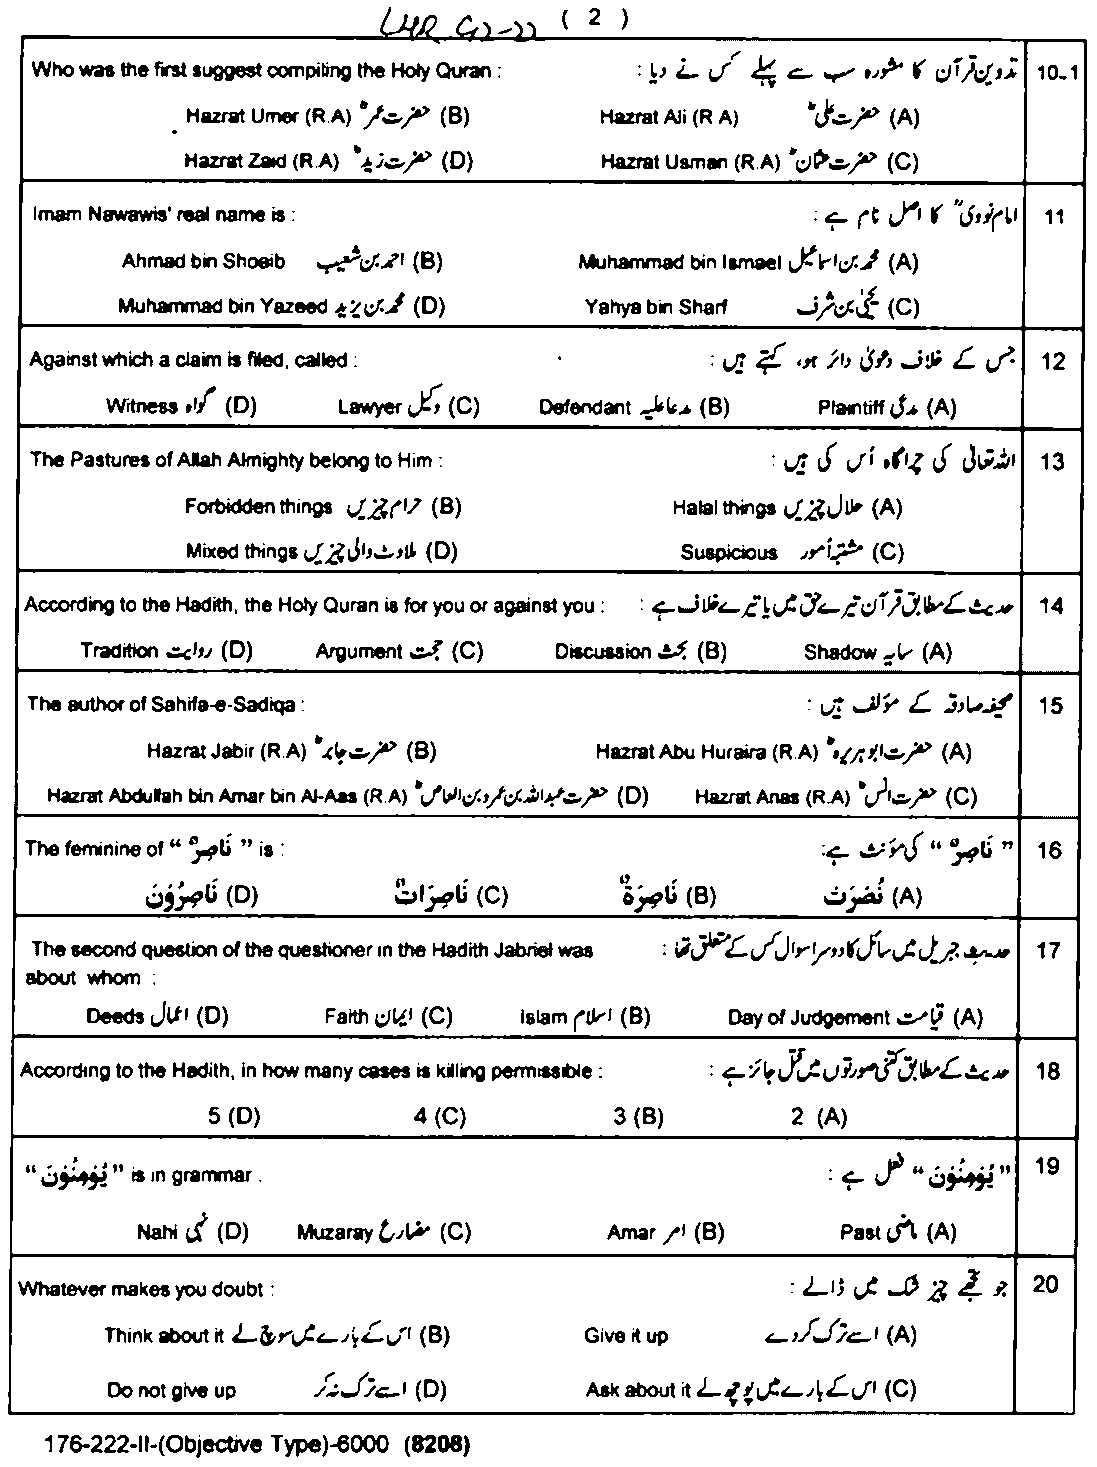 LHR G2-22 ( 2 )
Who was the first suggest compiling the Holy Quran : تدوین قرآن کا مشورہ سب سے پہلے کس نے دیا : 10-1
Hazrat Umer (R.A) حضرت عمرؓ (B) Hazrat Ali (R A) حضرت علیؓ (A)
Hazrat Zaid (R.A) حضرت زیدؓ (D) Hazrat Usman (R.A) حضرت عثمانؓ (C)
Imam Nawawis' real name is : امام نوویؒ کا اصل نام ہے : 11
Ahmad bin Shoeib احمد بن شعیب (B) Muhammad bin Ismael محمد بن اسماعیل (A)
Muhammad bin Yazeed محمد بن یزید (D) Yahya bin Sharf یحییٰ بن شرف (C)
Against which a claim is filed, called : جس کے خلاف دعویٰ دائر ہو، کہتے ہیں : 12
Witness گواہ (D) Lawyer وکیل (C) Defendant مدعا علیہ (B) Plaintiff مدعی (A)
The Pastures of Allah Almighty belong to Him : اللہ تعالیٰ کی چراگاہ اُس کی ہیں : 13
Forbidden things حرام چیزیں (B) Halal things حلال چیزیں (A)
Mixed things ملاوٹ والی چیزیں (D) Suspicious مشتبہ اُمور (C)
According to the Hadith, the Holy Quran is for you or against you : حدیث کے مطابق قرآن تیرے حق میں یا تیرے خلاف ہے : 14
Tradition روایت (D) Argument حجت (C) Discussion بحث (B) Shadow سایہ (A)
The author of Sahifa-e-Sadiqa : صحیفہ صادقہ کے مؤلف ہیں : 15
Hazrat Jabir (R.A) حضرت جابرؓ (B) Hazrat Abu Huraira (R.A) حضرت ابو ہریرہؓ (A)
Hazrat Abdullah bin Amar bin Al-Aas (R.A) حضرت عبداللہ بن عمرو بن العاصؓ (D) Hazrat Anas (R.A) حضرت انسؓ (C)
The feminine of “ نَاصِرٌ ” is : “ نَاصِرٌ ” کی مؤنث ہے: 16
نَاصِرُوْنَ (D) نَاصِرَاتٌ (C) نَاصِرَةٌ (B) نُصْرَتْ (A)
The second question of the questioner in the Hadith Jabriel was حدیثِ جبریل میں سائل کا دوسرا سوال کس کے متعلق تھا : 17
about whom :
Deeds اعمال (D) Faith ایمان (C) Islam اسلام (B) Day of Judgement قیامت (A)
According to the Hadith, in how many cases is killing permissible : حدیث کے مطابق کتنی صورتوں میں قتل جائز ہے : 18
5 (D) 4 (C) 3 (B) 2 (A)
“ يُؤْمِنُوْنَ ” is in grammar . “ يُؤْمِنُوْنَ ” فعل ہے : 19
Nahi نہی (D) Muzaray مضارع (C) Amar امر (B) Past ماضی (A)
Whatever makes you doubt : جو تجھے چیز شک میں ڈالے : 20
Think about it اس کے بارے میں سوچ لے (B) Give it up اسے ترک کر دے (A)
Do not give up اسے ترک نہ کر (D) Ask about it اس کے بارے میں پوچھ لے (C)
176-222-II-(Objective Type)-6000 (8208)